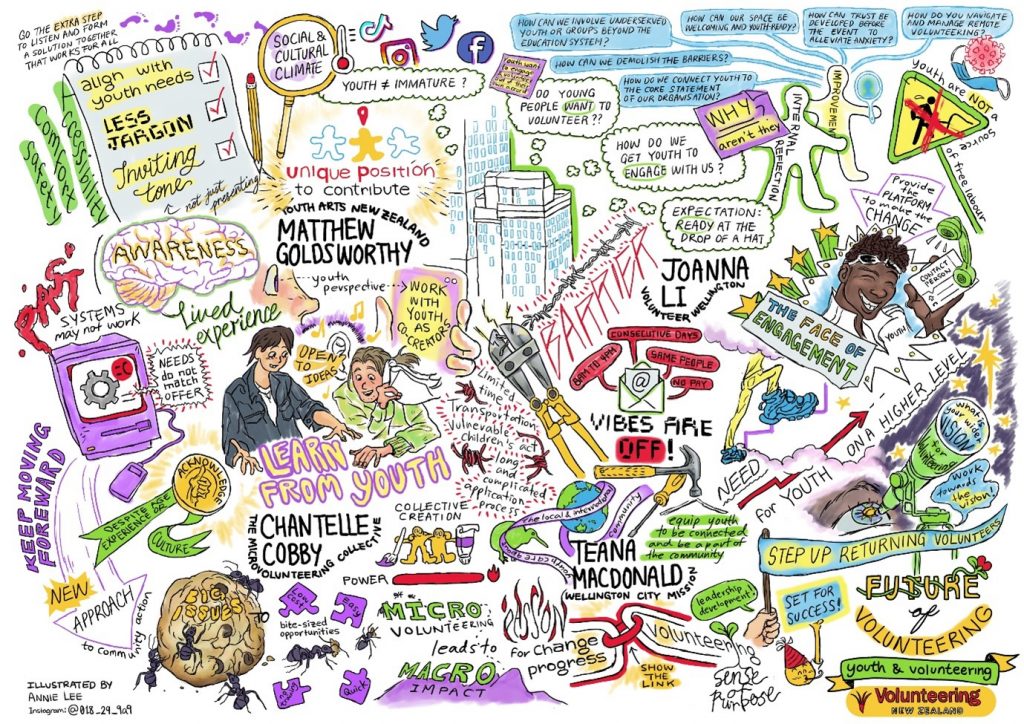 GO THE EXTRA STEP
TO LISTEN AND FORM
A SOLUTION TOGETHER
THAT WORKS FOR ALL
align with
youth needs
LESS
JARGON
Inviting
tone
not just presenting
Accessibility
Comfort
Safety
SOCIAL &
CULTURAL
CLIMATE
YOUTH ≠ IMMATURE ?
unique position
to contribute
YOUTH ARTS NEW ZEALAND
MATTHEW
GOLDSWORTHY
youth
perspective
WORK
WITH
YOUTH,
AS
CO
CREATORS
AWARENESS
Lived
experience
RAW!
SYSTEMS
may not work
NEEDS
do not
match
OFFER
OPEN
TO
IDEAS
LEARN
FROM YOUTH
KEEP MOVING
FOREWARD
DESPITE AGE
EXPERIENCE OR
CULTURE
ACKNOWLEDGE
CHANTELLE
COBBY
THE MICROVOLUNTEERING COLLECTIVE
NEW
APPROACH
to community action
BIG
ISSUES
Low
cost
Easy
bite-sized
opportunities
Quick
COLLECTIVE
CREATION
POWER
of
MICRO
VOLUNTEERING
leads to
MACRO
IMPACT
HOW CAN WE INVOLVE UNDERSERVED
YOUTH OR GROUPS BEYOND THE
EDUCATION SYSTEM?
HOW CAN OUR SPACE BE
WELCOMING AND YOUTH-READY?
HOW CAN TRUST BE
DEVELOPED BEFORE
THE EVENT TO
ALLEVIATE ANXIETY?
HOW DO YOU NAVIGATE
AND MANAGE REMOTE
VOLUNTEERING?
HOW CAN WE DEMOLISH THE BARRIERS?
HOW DO WE CONNECT YOUTH TO
THE CORE STATEMENT
OF OUR ORGANISATION?
Youth want
to engage
DO YOUNG
PEOPLE WANT TO
VOLUNTEER ??
HOW DO WE
GET YOUTH TO
ENGAGE WITH US ?
WHY
aren't they
EXPECTATION:
READY AT THE
DROP OF A HAT
INTERNAL
REFLECTION
IMPROVEMENT
Youth are NOT
a source
of free labour
Provide
the
PLATFORM
to make the
CHANGE
CONTACT
PERSON
YOUTH
THE FACE OF
ENGAGEMENT
JOANNA
LI
VOLUNTEER WELLINGTON
BARRIER
CONSECUTIVE DAYS
8AM TO 4PM
SAME PEOPLE
NO PAY
@
VIBES ARE
OFF!
Limited
time
Transportation
Vulnerable
children's act
long
and
complicated
application
process
NEED for YOUTH ON A HIGHER LEVEL
what's
your wider
VISION
for
volunteering
WORK
towards
the
vision!
The local & international
community
equip youth
to be connected
and be a part of
the community
TEANA
MACDONALD
WELLINGTON CITY MISSION
PASSION
for change
progress
Volunteering
SHOW
THE
LINK
leadership
development!
sense
of
purpose
STEP UP RETURNING VOLUNTEERS
SET FOR
SUCCESS!
FUTURE
of
VOLUNTEERING
youth & volunteering
Volunteering
NEW ZEALAND
ILLUSTRATED BY
ANNIE LEE
Instagram: @018_29_9a9